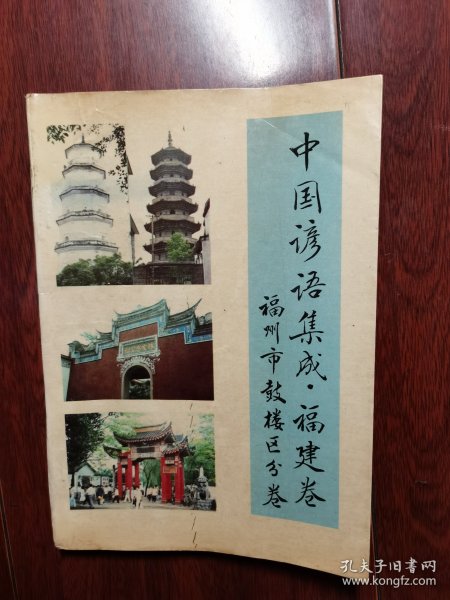 中国谚语集成·福建卷
福州市鼓楼区分卷
孔夫子旧书网
www.kongfz.com